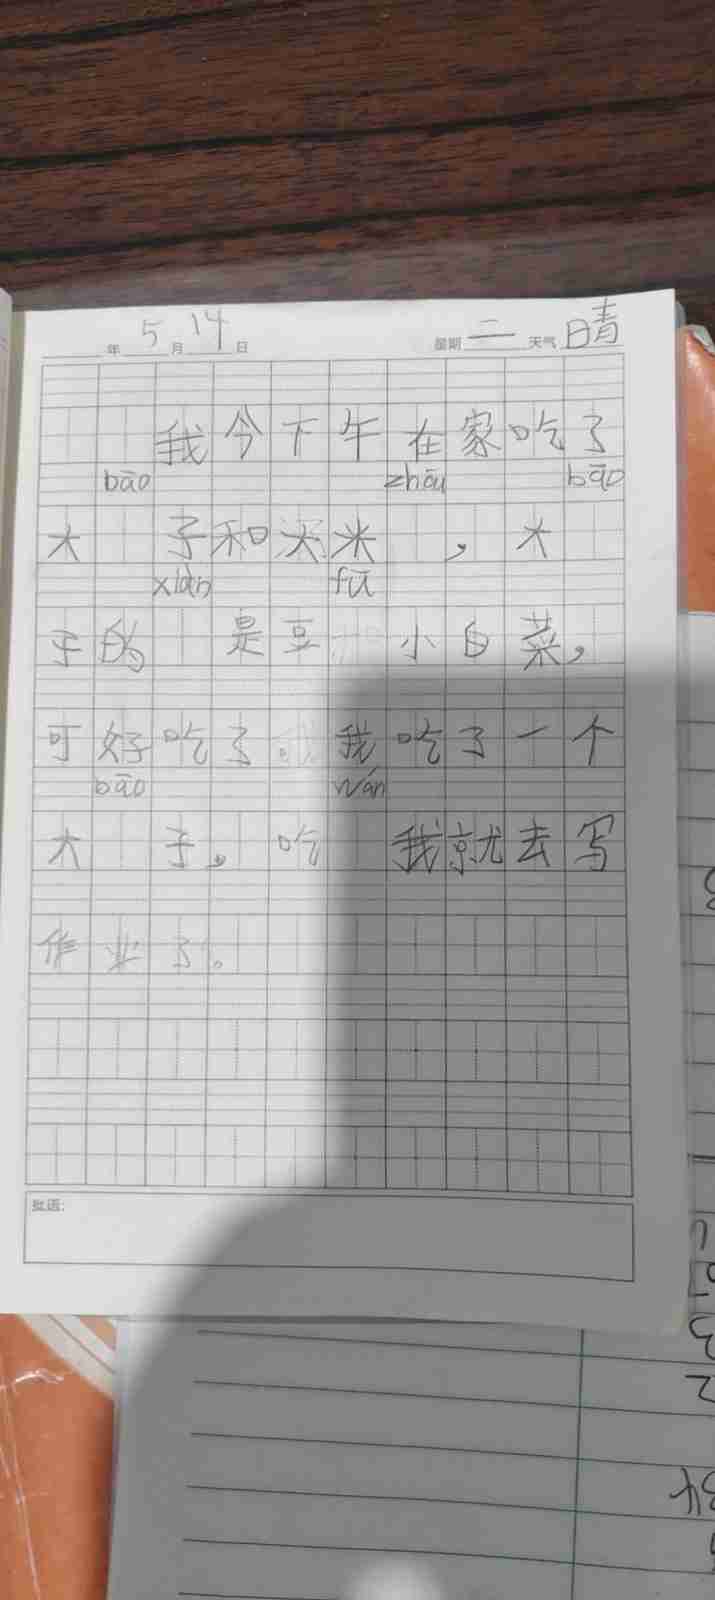 年 5 月 14 日 星期 二 天气 晴
我今下午在家吃了
bāo zhōu bāo
大 子和大米 ，大
xiàn fǔ
子的 是豆 小白菜，
可好吃了 我吃了一个
bāo wán
大 子，吃 我就去写
作业了。
批语：